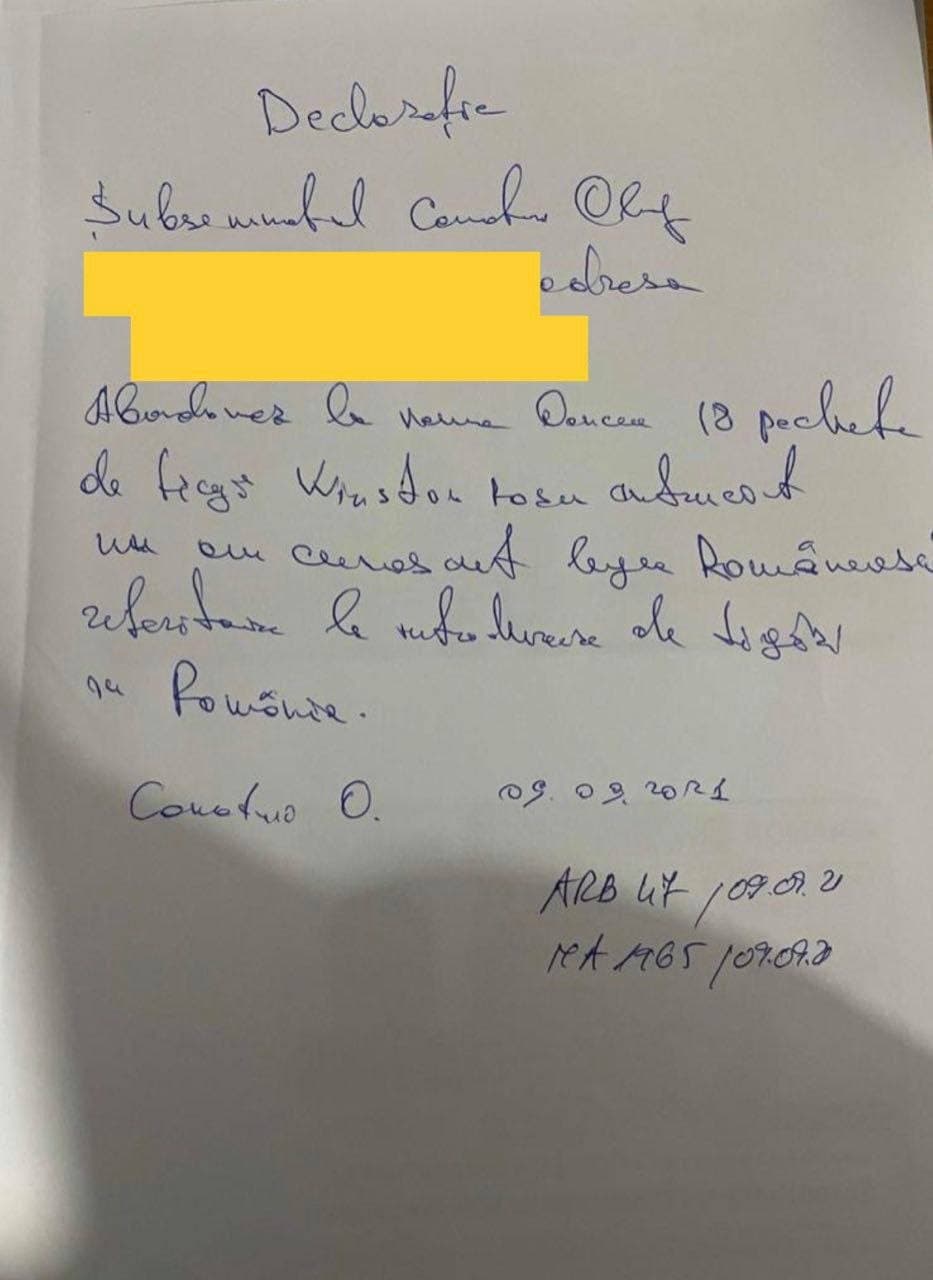 Declarație
Subsemnatul Oleg
adresa
Abandonez la 18 pachete
de țigări Winston roșu întrucât
nu am cunoscut legea Românească
referitoare la introducere de țigări
în România.
O. 09.09.2021
ARB 47 /09.09.21
MA 1965 /09.09.21